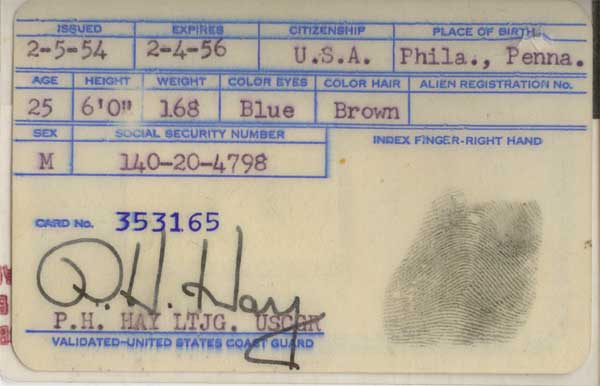 ISSUED EXPIRES CITIZENSHIP PLACE OF BIRTH
2-5-54 2-4-56 U.S.A. Phila., Penna.
AGE HEIGHT WEIGHT COLOR EYES COLOR HAIR ALIEN REGISTRATION No.
25 6'0" 168 Blue Brown
SEX SOCIAL SECURITY NUMBER INDEX FINGER-RIGHT HAND
M 140-20-4798
CARD No. 353165
P.H. Hay
P.H. HAY LTJG. USCGR
VALIDATED-UNITED STATES COAST GUARD